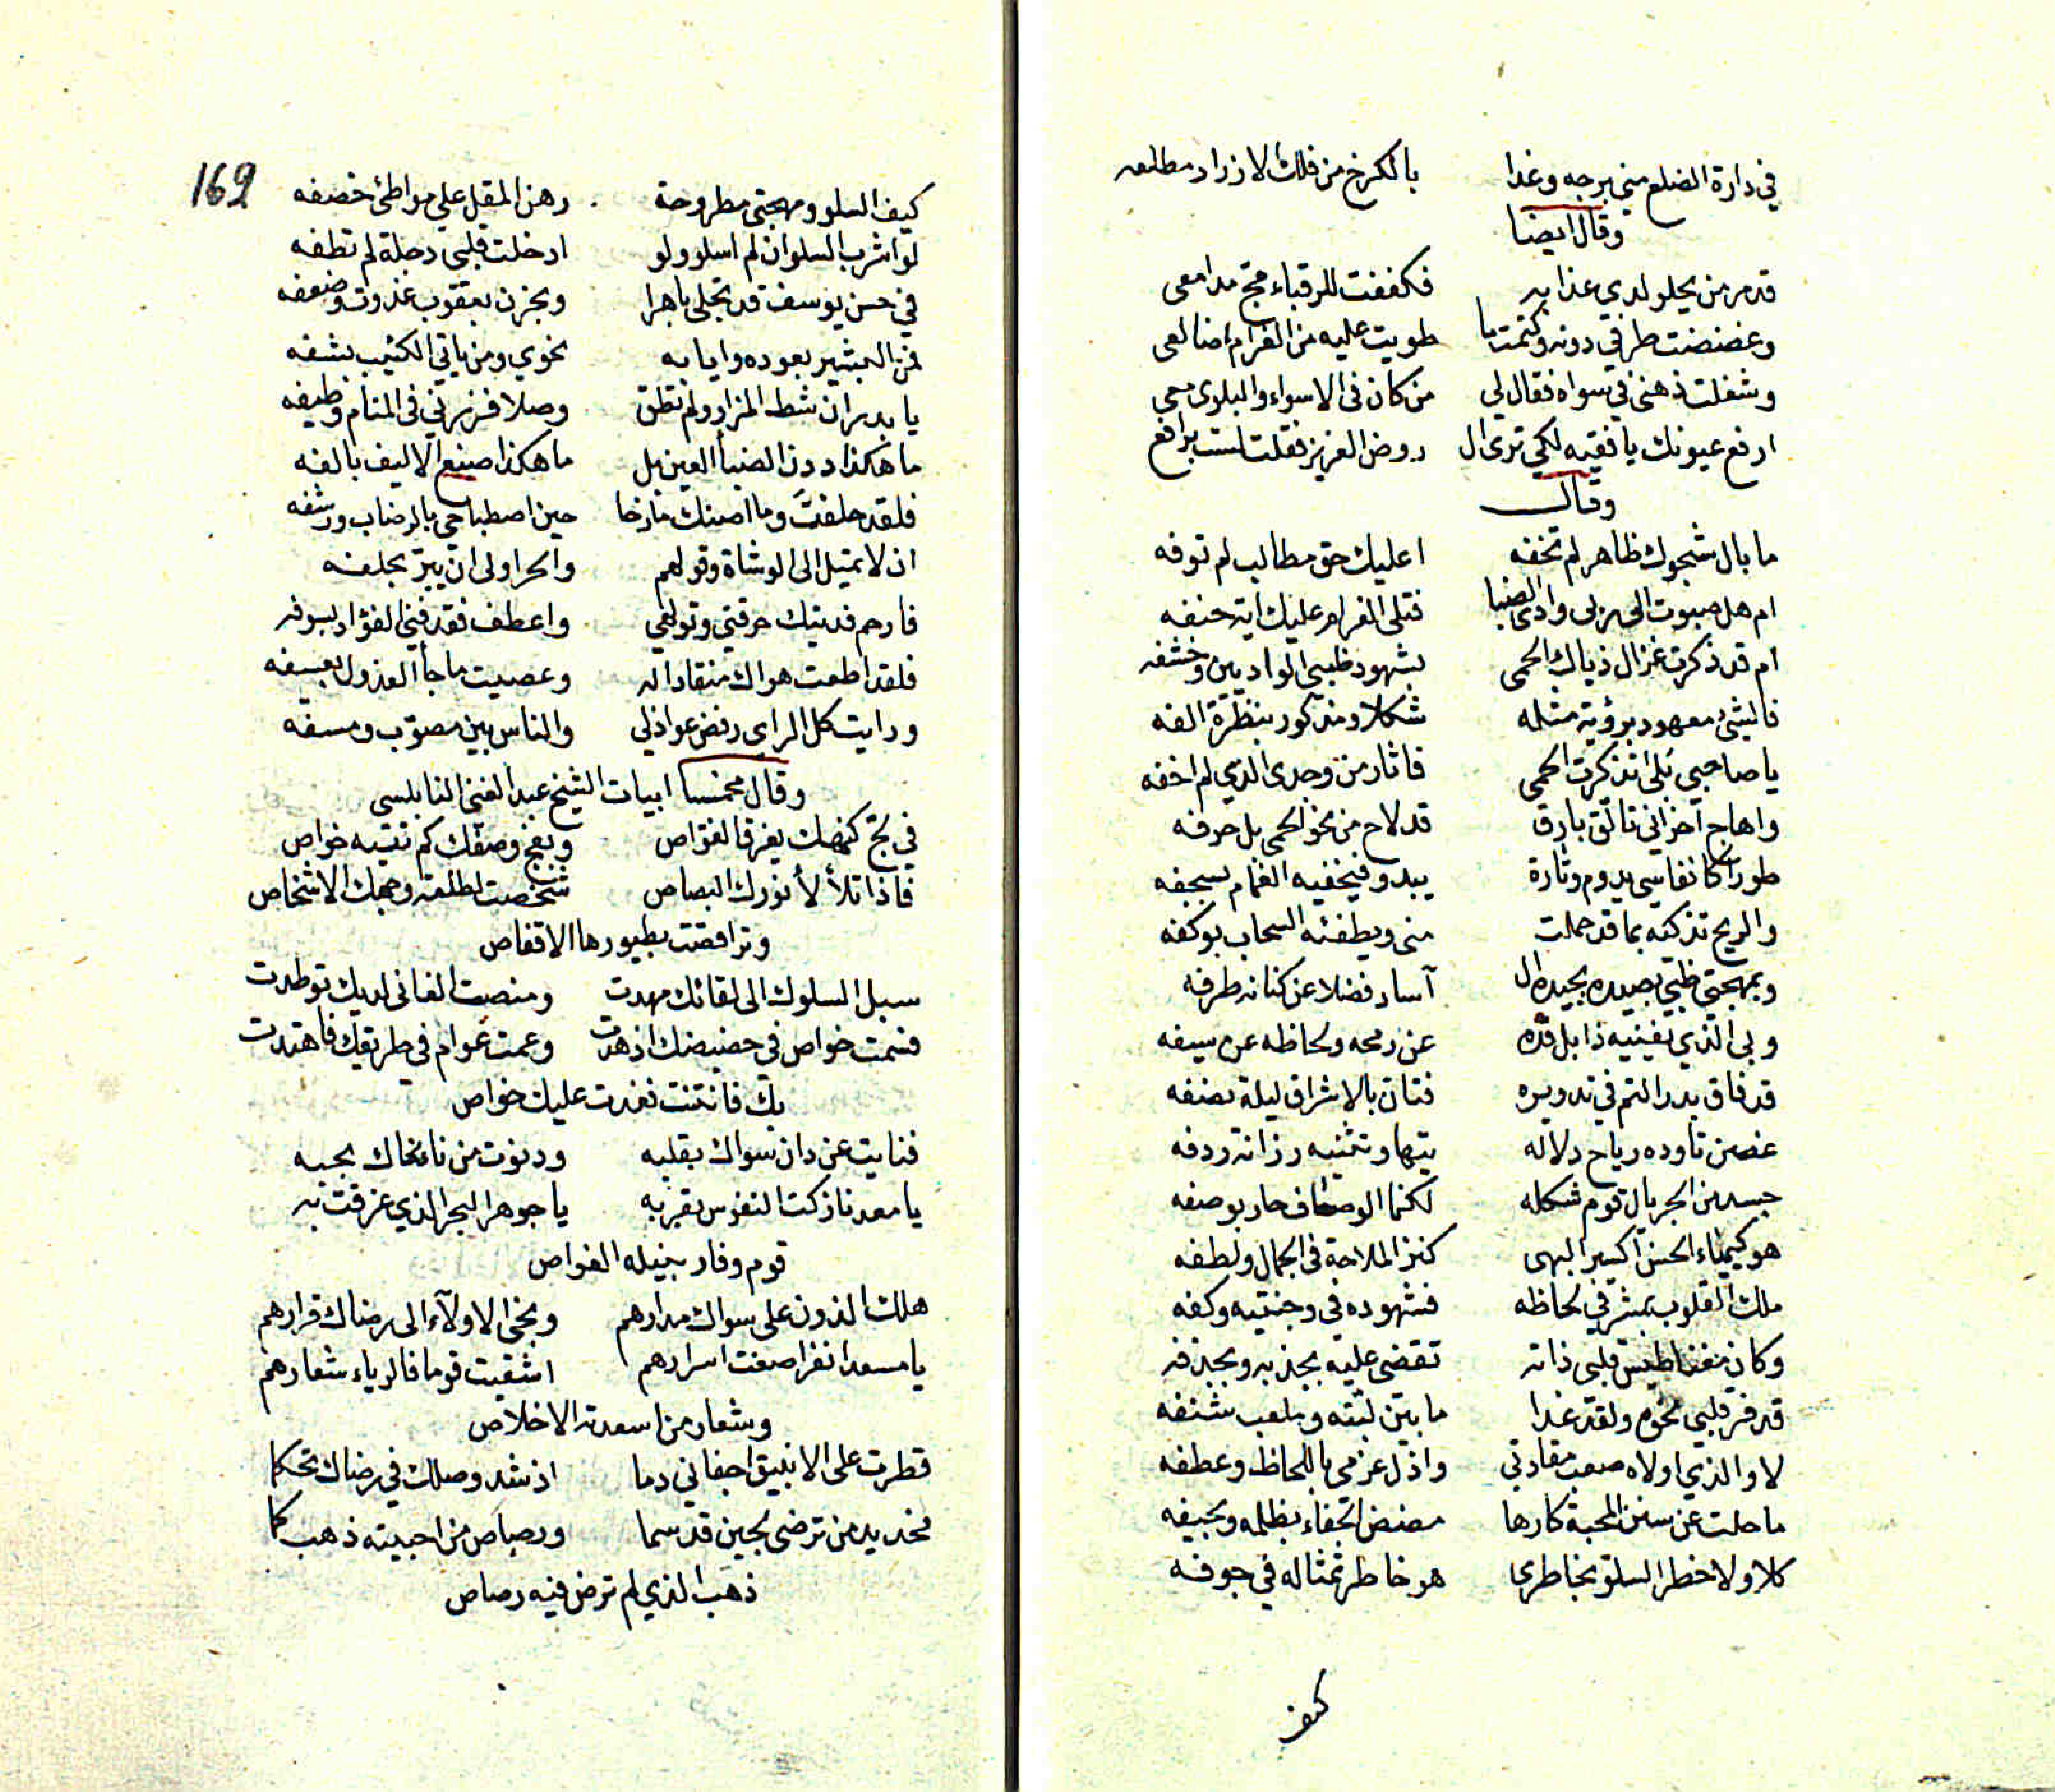 في دارة الضلع مني برجه وغدا بالكرخ من فلك الازرار مطلعه
وقال ايضا
قد مر من يحلو لدي عذابه فكففت للرقباء مدامعي
وغضضت طرفي دونه وكتمت ما طويت عليه من الغرام اضالعي
وشغلت ذهني في سواه فقال لي من كان في الاسواء والبلوى معي
ارفع عيونك يا فقيه لكي ترى ال روض العزيز فقلت لست برافع
وقال
ما بال شجوك ظاهر لم تخفه اعليك حق مطالب لم توفه
ام هل صبوت الى وادي الضبا فتلى الغرام عليك اية حتفه
ام قد ذكرت غزال ذياك الحمى بشهود ظبي الواديين وخشفه
فالشئ معهود برؤية مثله شكلا ومذكور بنظرة الفه
يا صاحبي تذكرت الحمى فاثار من وجدى الذي لم اخفه
واهاج احزاني تالق بارق قد لاح من نحو الحمى بل حرفه
طورا كانفاسي يدوم وتارة يبدو فيخفيه الغمام بسجفه
والريح تذكيه بما قد حملت مني ويطفئه السحاب بوكفه
وبمهجتي ظبي يصيده بجيده ال آساد فضلا عن كنانة طرفه
وبي الذي يغنيه ذابل قده عن رمحه ولحاظه عن سيفه
قد فاق بدر التم في تدويره فتان بالاشراق ليلة نصفه
غصن تاوده رياح دلاله تيها وتثنيه رزانة ردفه
جسد من الجريال قوم شكله لكنما الوصاف حار بوصفه
هو كيمياء الحسن اكسير البهى كنز الملاحة في الجمال ولطفه
ملك القلوب بمشرفي لحاظه فشهوده في وجنتيه وكفه
وكان مغناطيس قلبي ذاته تقضي عليه بجذبه وبجذفه
قد فر قلبي نحوه ولقد غدا ما بين لبته وملعب شنفه
لا والذي اولاه صعب مقادتي واذل عزمي باللحاظ وعطفه
ما حلت عن سنن المحبة كارها مضض الجفاء بظلمه وبحيفه
كلا ولا خطر السلو بخاطري هو خاطر تمثاله في جوفه
كيف
169
كيف السلو ومهجتي مطروحة رهن المقل على مواطئ خصفه
لو اشرب السلوان لم اسلو ولو ادخلت قلبي دجلة لم تطفه
في حسن يوسف قد تجلى باهرا وبحزن يعقوب غدوت وضعفه
فمن البشير بعوده وايابه نحوي ومن ياتي الكئيب بشفه
يا بدر ان شط المزار ولم تطق وصلا فزرني في المنام وطيفه
ما هكذا ددن الضبا العين بل ما هكذا صنع الاليف بالفه
فلقد حلفت وما اصنك مازحا حين اصطباحي بالرضاب ورشفه
ان لا تميل الى الوشاة وقولهم والحر اولى ان يبر بحلفه
فارحم فديتك حرقتي وتولهي واعطف فقد فني الفؤاد بسوفه
فلقد اطعت هواك منقادا له وعصيت ما جأ العذول بعسفه
ورايت كل الراى رفض عواذلي والناس بين مصوب ومسفه
وقال مخمسا ابيات الشيخ عبد الغني النابلسي
في لج كنهك يغرق الغواص وبفج وصفك كم تتيه خواص
فاذا تلألأ نورك البصاص شخصت لطلعة وجهك الاشخاص
وتراقصت بطيورها الاقفاص
سبل السلوك الى لقائك مهدت ومنصت الفاني لديك توطدت
فسمت خواص في حضيضك اذ هدت وعمت عوام في طريقك فاهتدت
بك فانثنت فغدت عليك خواص
فنايت عن دان سواك بقلبه ودنوت من ناء نحاك بحبه
يا معدنا زكت النفوس بقربه يا جوهر البحر الذي غرقت به
قوم وفاز بنيله الغواص
هلك الذون على سواك مدارهم ونجى الاولآء الى رضاك قرارهم
يا مسعدا نفرا صفت اسرارهم اشقيت قوما فالرياء شعارهم
وشعار من اسعدته الاخلاص
قطرت على الانبيق اجفاني دما اذ شد وصلك في رضاك تحكما
فحديد من ترضى لجين قد سما ورصاص من احببته ذهب كما
ذهب الذي لم ترض فيه رصاص